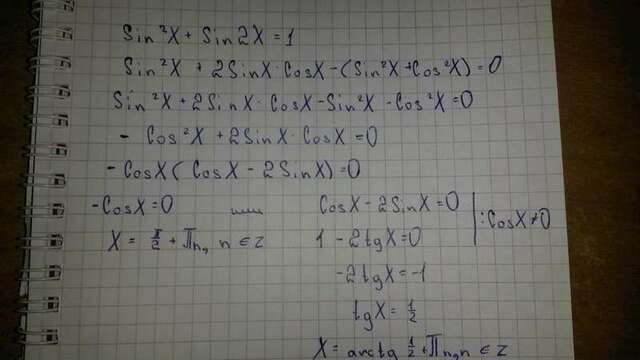 Sin²X + Sin2X = 1
Sin²X + 2SinX·CosX - (Sin²X + Cos²X) = 0
Sin²X + 2SinX·CosX - Sin²X - Cos²X = 0
- Cos²X + 2SinX·CosX = 0
- CosX (CosX - 2SinX) = 0
-CosX = 0 или CosX - 2SinX = 0 | : CosX ≠ 0
X = π/2 + Πn, n ∈ Z 1 - 2tgX = 0
-2tgX = -1
tgX = 1/2
X = arctg 1/2 + Πn, n ∈ Z